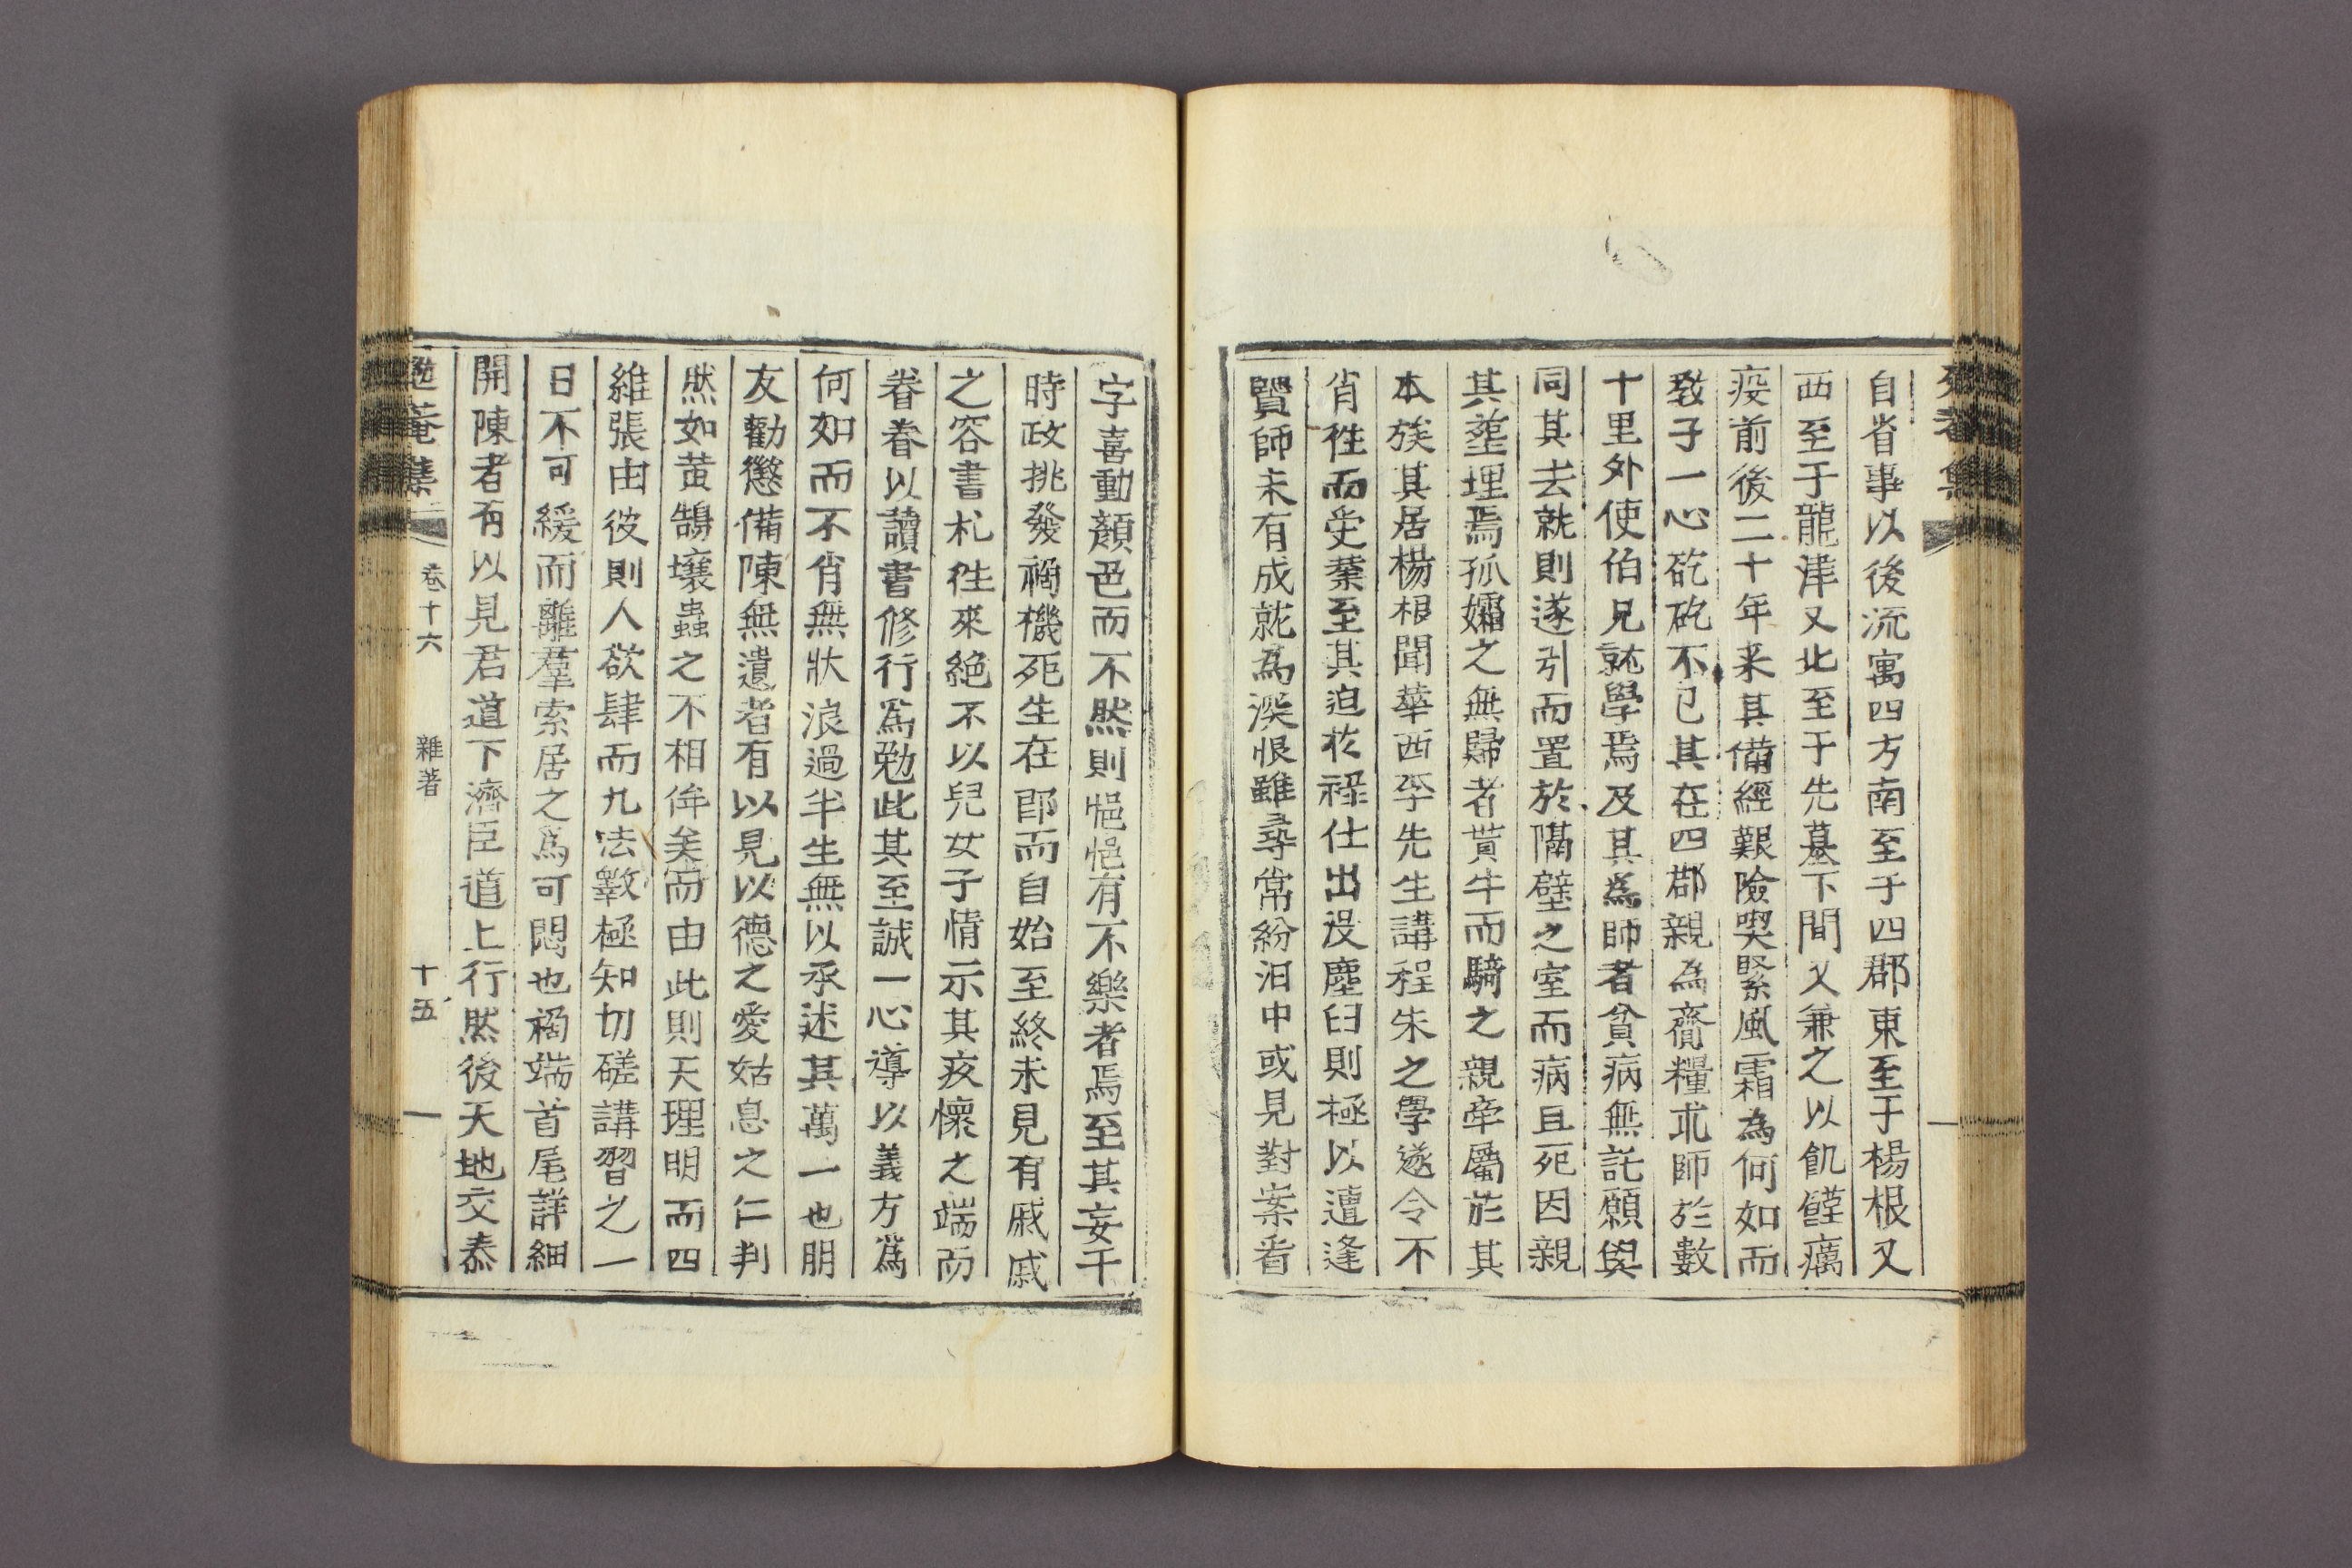 自省事以後流寓四方南至于四郡東至于楊根又
西至于龍津又北至于先墓下間又兼之以飢饉癘
疫前後二十年来其備經艱險喫緊風霜為何如而
敎子一心矻矻不已其在四郡親為齎糧求師於數
十里外使伯兄就學焉及其為師者貧病無託願與
同其去就則遂引而置於隔壁之室而病且死因親
其葬埋焉孤孀之無歸者貰牛而騎之親牽屬於其
本族其居楊根聞華西李先生講程朱之學遂令不
肖徃而受業至其迫於祿仕出沒塵臼則極以遭逢
賢師未有成就為深恨雖尋常紛汨中或見對案看
字喜動顏色而不然則悒悒有不樂者焉至其妄干
時政挑發禍機死生在卽而自始至終未見有戚戚
之容書札徃來絕不以兒女子情示其疚懷之端而
眷眷以讀書修行爲勉此其至誠一心導以義方爲
何如而不肖無狀浪過半生無以承述其萬一也朋
友勸懲備陳無遺者有以見以德之愛姑息之仁判
然如黃鵠壤蟲之不相侔矣而由此則天理明而四
維張由彼則人欲肆而九法斁極知切磋講習之一
日不可緩而離羣索居之爲可悶也禍端首尾詳細
開陳者有以見君道下濟臣道上行然後天地交泰
勉菴集 卷十六 雜著 十五